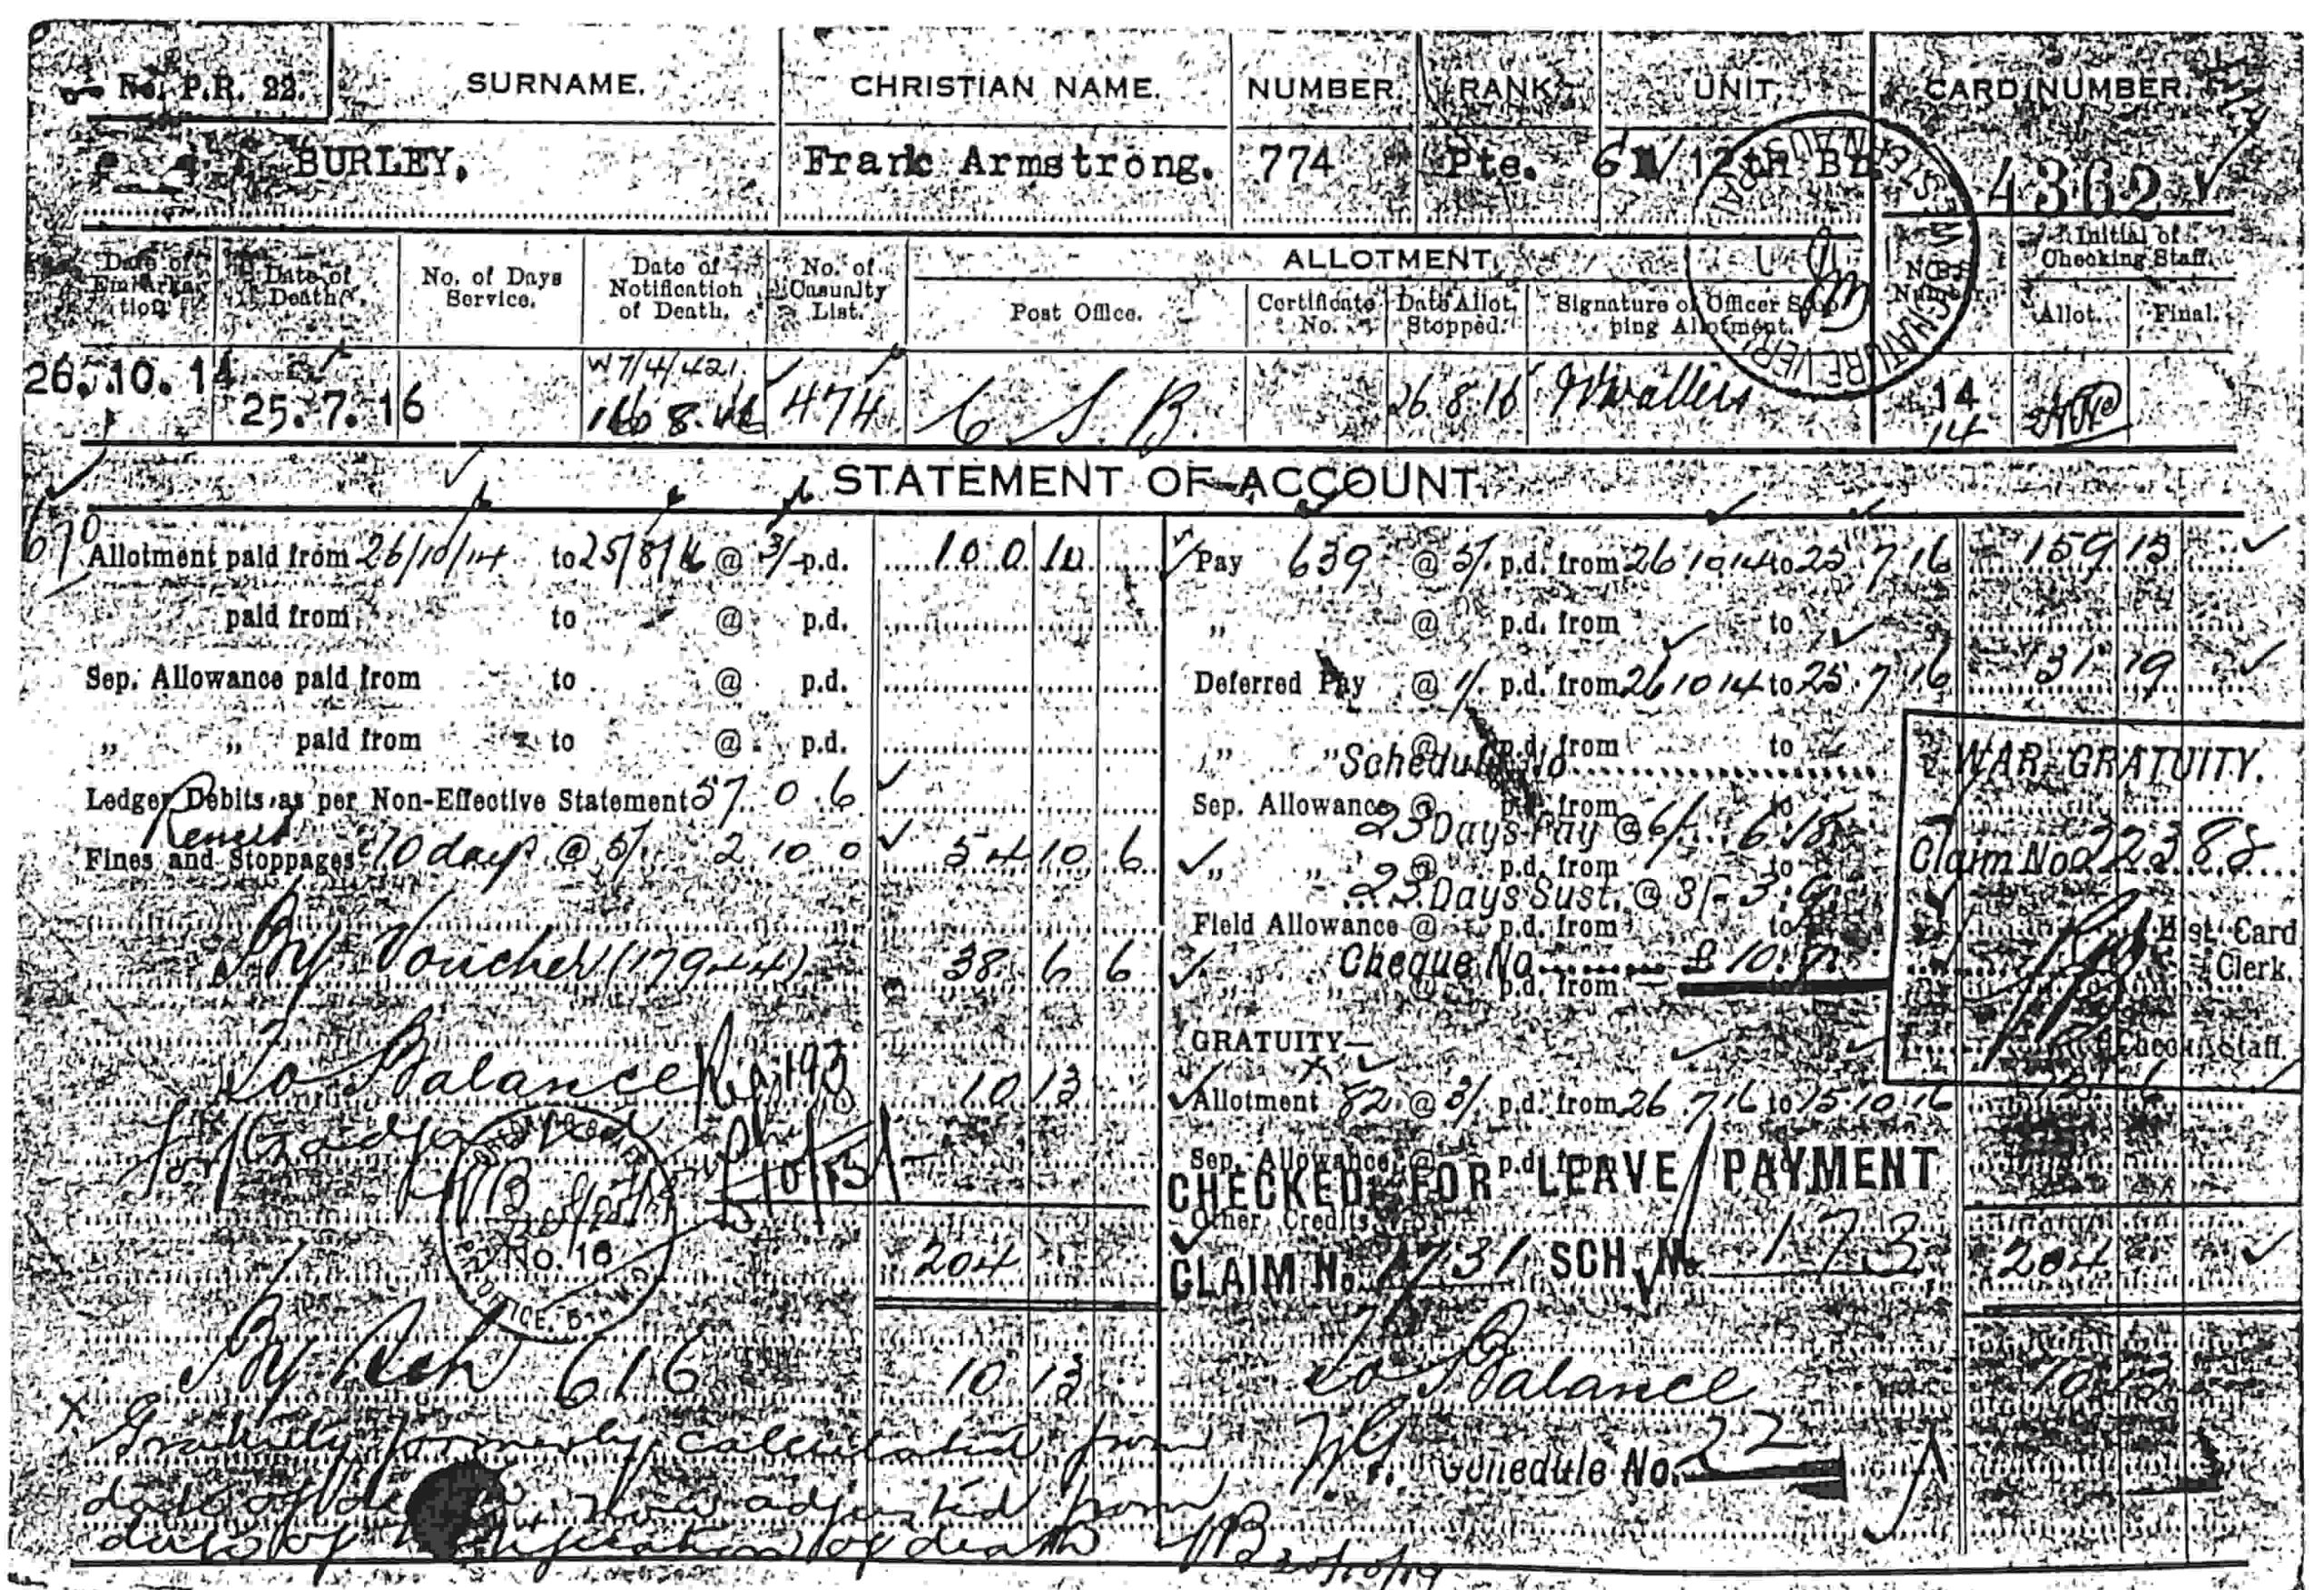 No. P.R. 22.
SURNAME. CHRISTIAN NAME. NUMBER. RANK. UNIT. CARD NUMBER.
BURLEY. Frank Armstrong. 774 Pte. 12th Bn. 4362
Date of Embarkation Date of Death. No. of Days Service. Date of Notification of Death. No. of Casualty List. ALLOTMENT. Initial of Checking Staff.
Post Office. Certificate No. Date Allot. Stopped. Signature of Officer Stopping Allotment. Allot. Final.
SIGNATURE VERIFIED
26.10.14 25.7.16 W7/4/421 16 8.16 474 C S. B. 26.8.16 14
14
STATEMENT OF ACCOUNT.
670
Allotment paid from 26/10/14 to 25/8/16 @ 3/- p.d. 100 10
paid from to @ p.d.
Sep. Allowance paid from to @ p.d.
„ „ paid from to @ p.d.
Ledger Debits as per Non-Effective Statement 57 0 6
Fines and Stoppages 10 days @ 5/ 2 10 0 54 10 6
By Voucher (17944) 38 6 6
To Balance 10 13
No. 16
204
By Sch 616 10 13
x Gratuity formerly calculated from
date of death now adjusted from
date of notification of death
20/10/19
Pay 639 @ 5/. p.d. from 26 10 14 to 25.7.16 159 15
„ @ p.d. from to
Deferred Pay @ 1/. p.d. from 26 10 14 to 25.7.16 31 19
„ „ @ p.d. from to
Schedule No.
Sep. Allowance @ p.d. from to
23 Days Pay @ 6/- 6.18.
„ „ @ p.d. from to
23 Days Sust. @ 3/- 3.9.
Field Allowance @ p.d. from to
Cheque No. £10.7.
@ p.d. from
WAR GRATUITY.
Claim No. 22388
Hist. Card
Clerk.
Check. Staff.
GRATUITY—
Allotment 82 @ 3/ p.d. from 26.7.16 to 15.10.16 12 6
Sep. Allowance @ p.d. from
CHECKED FOR LEAVE PAYMENT
Other Credits
CLAIM No. SCH. No. 173 204
To Balance 10 13
WG. Schedule No. 22